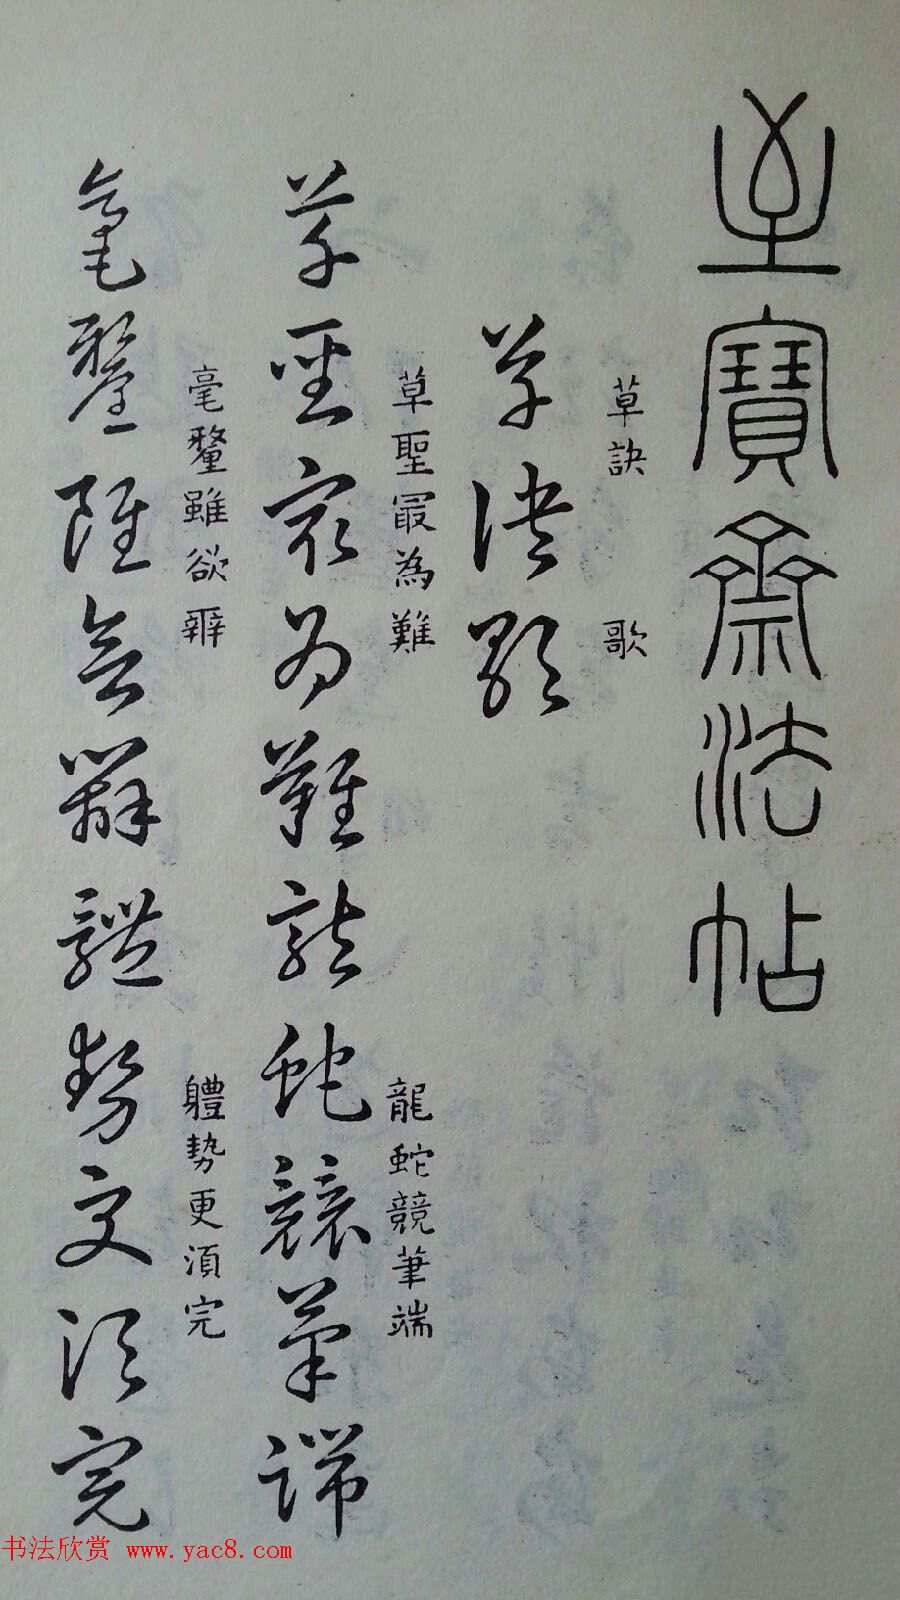 至寶齋法帖
草訣歌
草訣 歌
草聖最為難龍蛇競筆端
草聖㝡為難 龍蛇競筆端
毫釐雖欲辨體勢更須完
毫釐雖欲辨 軆勢更湏完
书法欣赏 www.yac8.com